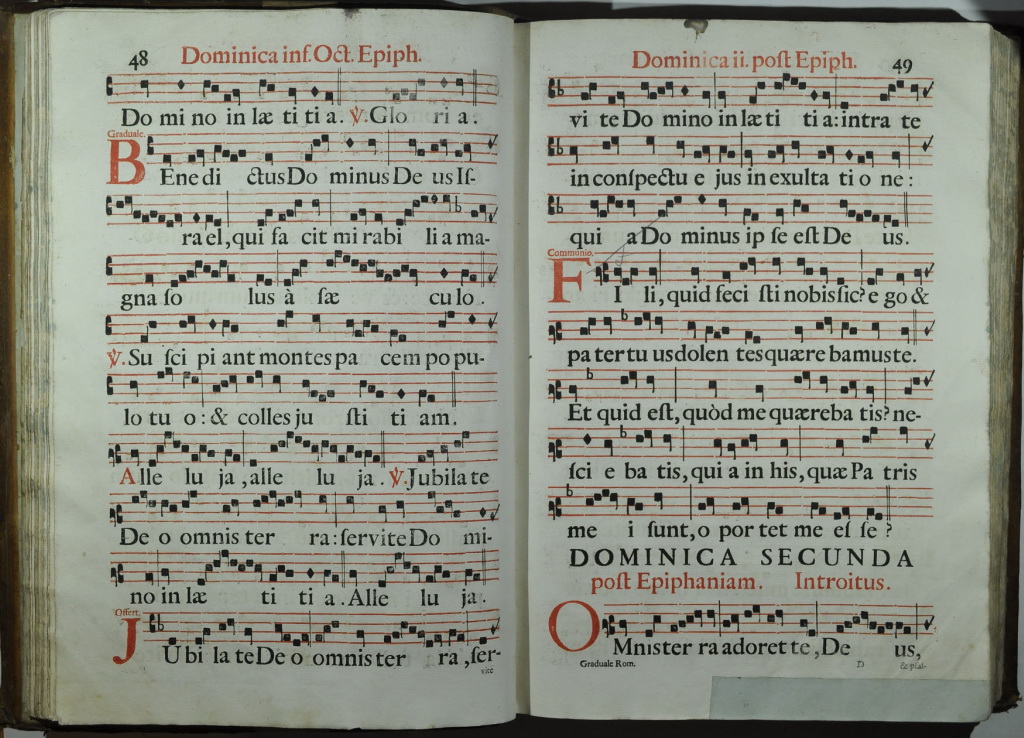 48 Dominica inf. Oct. Epiph.
Do mi no in læ ti ti a. ℣. Glo ri a.
Graduale.
BEne di ctus Do minus De us Iſ-
ra el, qui fa cit mi rabi li a ma-
gna ſo lus à ſæ cu lo.
℣. Su ſci pi ant montes pa cem po pu-
lo tu o: & colles ju ſti ti am.
Alle lu ja, alle lu ja. ℣. Jubila te
De o omnis ter ra: ſervite Do mi-
no in læ ti ti a. Alle lu ja.
Offert.
JUbi la te De o omnis ter ra, ſer-
vite
Dominica ii. poſt Epiph. 49
vi te Do mino in læ ti ti a: intra te
in conſpectu e jus in exulta ti o ne:
qui a Do minus ip ſe eſt De us.
Communio.
FI li, quid feci ſti nobis ſic? e go &
pa ter tu us dolen tes quære bamus te.
Et quid eſt, quòd me quæreba tis? ne-
ſci e ba tis, qui a in his, quæ Pa tris
me i ſunt, o por tet me eſ ſe?
DOMINICA SECUNDA
poſt Epiphaniam. Introitus.
OMnis ter ra adoret te, De us,
Graduale Rom. D & pſal-